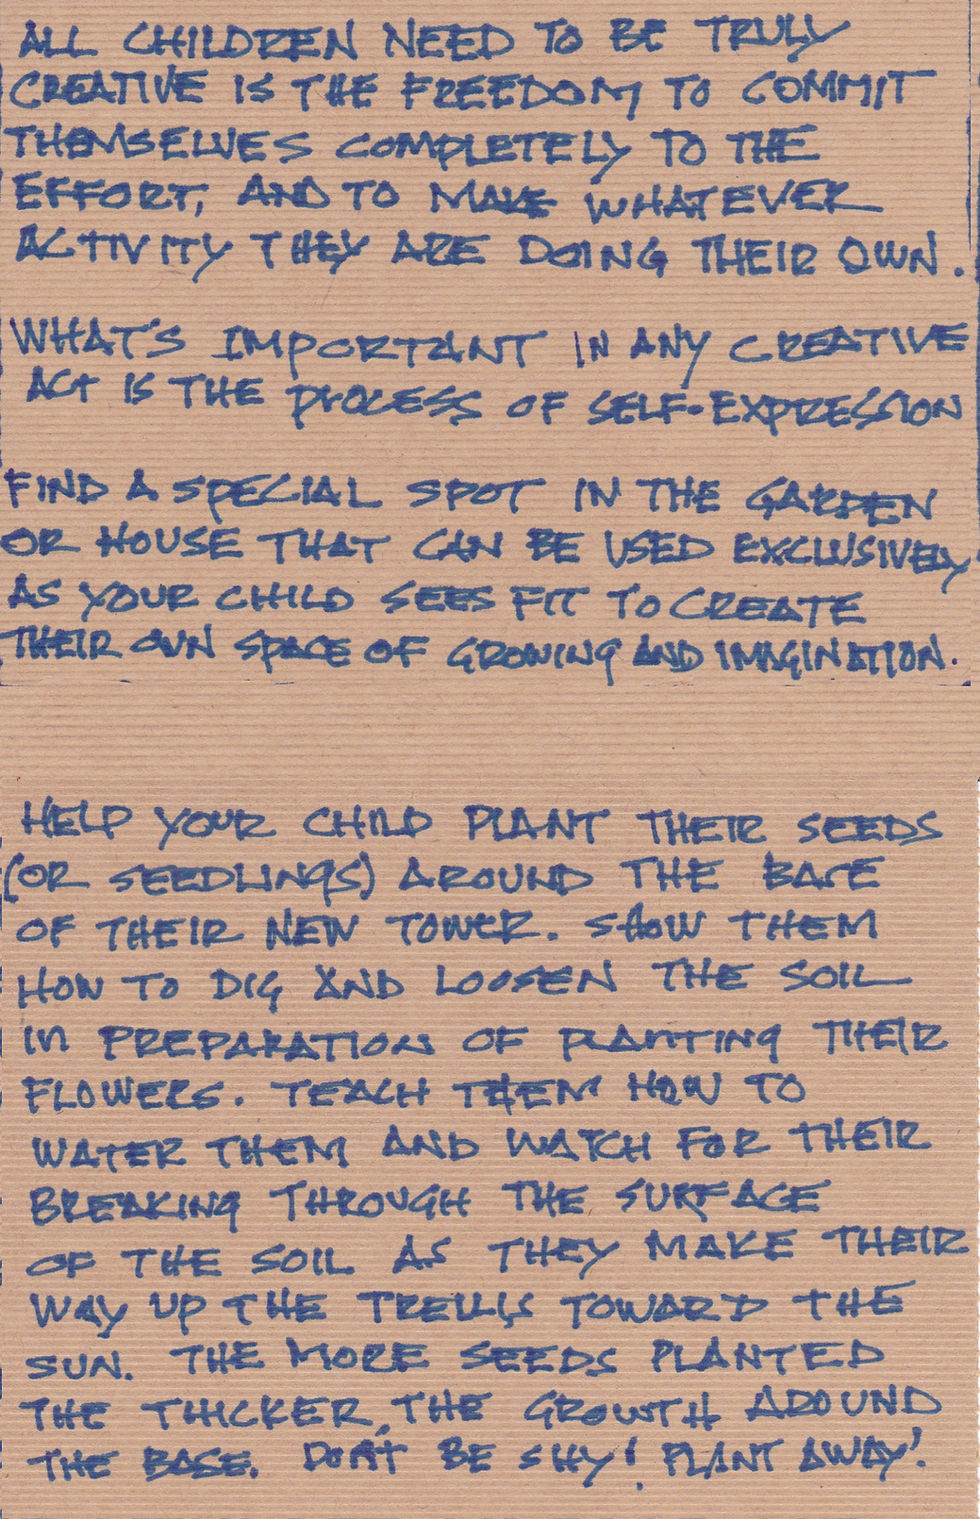 ALL CHILDREN NEED TO BE TRULY
CREATIVE IS THE FREEDOM TO COMMIT
THEMSELVES COMPLETELY TO THE
EFFORT, AND TO MAKE WHATEVER
ACTIVITY THEY ARE DOING THEIR OWN.
WHAT'S IMPORTANT IN ANY CREATIVE
ACT IS THE PROCESS OF SELF-EXPRESSION
FIND A SPECIAL SPOT IN THE GARDEN
OR HOUSE THAT CAN BE USED EXCLUSIVELY
AS YOUR CHILD SEES FIT TO CREATE
THEIR OWN SPACE OF GROWING AND IMAGINATION.
HELP YOUR CHILD PLANT THEIR SEEDS
(OR SEEDLINGS) AROUND THE BASE
OF THEIR NEW TOWER. SHOW THEM
HOW TO DIG AND LOOSEN THE SOIL
IN PREPARATION OF PLANTING THEIR
FLOWERS. TEACH THEM HOW TO
WATER THEM AND WATCH FOR THEIR
BREAKING THROUGH THE SURFACE
OF THE SOIL AS THEY MAKE THEIR
WAY UP THE TRELLIS TOWARD THE
SUN. THE MORE SEEDS PLANTED
THE THICKER, THE GROWTH AROUND
THE BASE. DON'T BE SHY! PLANT AWAY!